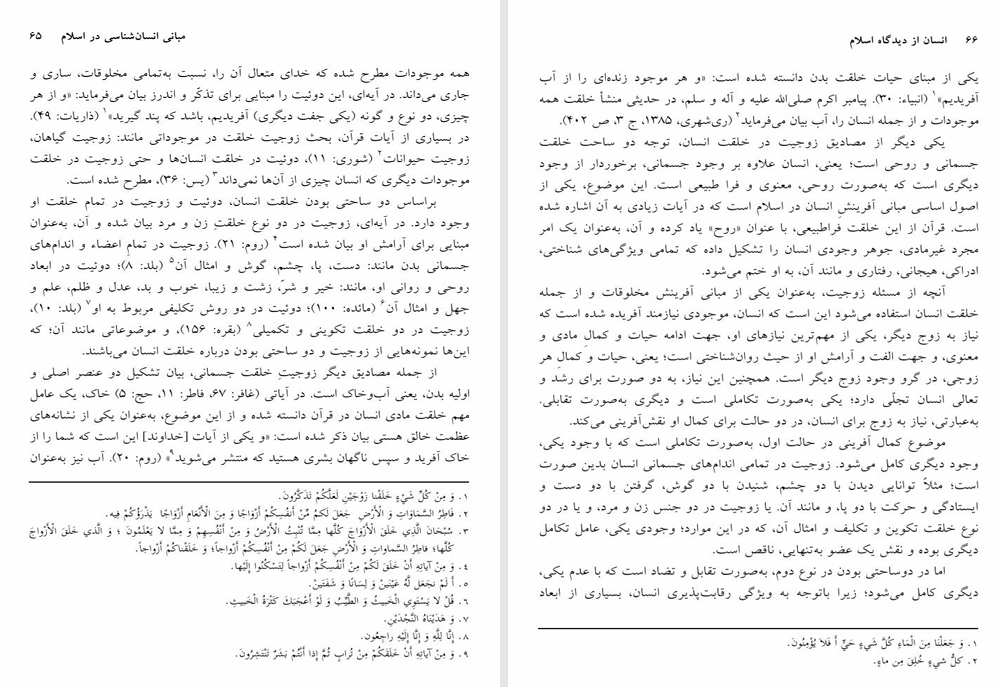 مبانی انسان‌شناسی در اسلام ۶۵
همه موجودات مطرح شده که خدای متعال آن را، نسبت به‌تمامی مخلوقات، ساری و
جاری می‌داند. در آیه‌ای، این دوئیت را مبنایی برای تذکّر و اندرز بیان می‌فرماید: «و از هر
چیزی، دو نوع و گونه (یکی جفت دیگری) آفریدیم، باشد که پند گیرید»۱ (ذاریات: ۴۹).
در بسیاری از آیات قرآن، بحث زوجیت خلقت در موجوداتی مانند: زوجیت گیاهان،
زوجیت حیوانات۲ (شوری: ۱۱)، دوئیت در خلقت انسان‌ها و حتی زوجیت در خلقت
موجودات دیگری که انسان چیزی از آن‌ها نمی‌داند۳ (یس: ۳۶)، مطرح شده است.
براساس دو ساحتی بودن خلقت انسان، دوئیت و زوجیت در تمام خلقت او
وجود دارد. در آیه‌ای، زوجیت در دو نوع خلقتِ زن و مرد بیان شده و آن، به‌عنوان
مبنایی برای آرامش او بیان شده است۴ (روم: ۲۱). زوجیت در تمامِ اعضاء و اندام‌های
جسمانی بدن مانند: دست، پا، چشم، گوش و امثال آن۵ (بلد: ۸)؛ دوئیت در ابعاد
روحی و روانی او، مانند: خیر و شرّ، زشت و زیبا، خوب و بد، عدل و ظلم، علم و
جهل و امثال آن۶ (مائده: ۱۰۰)؛ دوئیت در دو روش تکلیفی مربوط به او۷ (بلد: ۱۰)،
زوجیت در دو خلقت تکوینی و تکمیلی۸ (بقره: ۱۵۶)، و موضوعاتی مانند آن؛ که
این‌ها نمونه‌هایی از زوجیت و دو ساحتی بودن درباره خلقت انسان می‌باشند.
از جمله مصادیق دیگر زوجیتِ خلقت جسمانی، بیان تشکیل دو عنصر اصلی و
اولیه بدن، یعنی آب‌وخاک است. در آیاتی (غافر: ۶۷، فاطر: ۱۱، حج: ۵) خاک، یک عامل
مهم خلقت مادی انسان در قرآن دانسته شده و از این موضوع، به‌عنوان یکی از نشانه‌های
عظمت خالق هستی بیان ذکر شده است: «و یکی از آیات [خداوند] این است که شما را از
خاک آفرید و سپس ناگهان بشری هستید که منتشر می‌شوید۹» (روم: ۲۰). آب نیز به‌عنوان
۱. وَ مِنْ کُلِّ شَیْءٍ خَلَقْنا زَوْجَیْنِ لَعَلَّکُمْ تَذَکَّرُونَ.
۲. فَاطِرُ السَّمَاوَاتِ وَ الْأَرْضِ جَعَلَ لَکُمْ مِّنْ أَنفُسِکُمْ أَزْوَاجًا وَ مِنَ الْأَنْعَامِ أَزْوَاجًا یَذْرَؤُکُمْ فِیه.
۳. سُبْحَانَ الَّذِی خَلَقَ الْأَزْوَاجَ کُلَّها مِمَّا تُنْبِتُ الْأَرْضُ وَ مِنْ أَنْفُسِهِمْ وَ مِمَّا لا یَعْلَمُونَ ؛ وَ الَّذی خَلَقَ الْأَزْواجَ
کُلَّها؛ فاطِرُ السَّماواتِ وَ الْأَرْضِ جَعَلَ لَکُمْ مِنْ أَنْفُسِکُمْ أَزْواجاً؛ وَ خَلَقْناکُمْ أَزْواجاً.
۴. وَ مِنْ آیاتِهِ أَنْ خَلَقَ لَکُمْ مِنْ أَنْفُسِکُمْ أَزْواجاً لِتَسْکُنُوا إِلَیْها.
۵. أَ لَمْ نَجعَل لَّهُ عَیْنَیْنِ وَ لِسَانًا وَ شَفَتَیْنِ.
۶. قُلْ لا یَسْتَوِی الْخَبیثُ وَ الطَّیِّبُ وَ لَوْ أَعْجَبَکَ کَثْرَةُ الْخَبیثِ.
۷. وَ هَدَیْنَاهُ النَّجْدَیْنِ.
۸. إِنَّا لِلَّهِ وَ إِنَّا إِلَیْهِ راجِعُون.
۹. وَ مِنْ آیاتِهِ أَنْ خَلَقَکُمْ مِنْ تُرابٍ ثُمَّ إِذا أَنْتُمْ بَشَرٌ تَنْتَشِرُونَ.
۶۶ انسان از دیدگاه اسلام
یکی از مبنای حیات خلقت بدن دانسته شده است: «و هر موجود زنده‌ای را از آب
آفریدیم»۱ (انبیاء: ۳۰). پیامبر اکرم صلی‌الله علیه و آله و سلم، در حدیثی منشأ خلقت همه
موجودات و از جمله انسان را، آب بیان می‌فرماید۲ (ری‌شهری، ۱۳۸۵، ج ۳، ص ۴۰۲).
یکی دیگر از مصادیق زوجیت در خلقت انسان، توجه دو ساحت خلقت
جسمانی و روحی است؛ یعنی، انسان علاوه بر وجود جسمانی، برخوردار از وجود
دیگری است که به‌صورت روحی، معنوی و فرا طبیعی است. این موضوع، یکی از
اصول اساسی مبانی آفرینشِ انسان در اسلام است که در آیات زیادی به آن اشاره شده
است. قرآن از این خلقت فراطبیعی، با عنوان «روح» یاد کرده و آن، به‌عنوان یک امر
مجرد غیرمادی، جوهر وجودی انسان را تشکیل داده که تمامی ویژگی‌های شناختی،
ادراکی، هیجانی، رفتاری و مانند آن، به او ختم می‌شود.
آنچه از مسئله زوجیت، به‌عنوان یکی از مبانی آفرینش مخلوقات و از جمله
خلقت انسان استفاده می‌شود این است که انسان، موجودی نیازمند آفریده شده است که
نیاز به زوج دیگر، یکی از مهم‌ترین نیازهای او، جهت ادامه حیات و کمالِ مادی و
معنوی، و جهت الفت و آرامش او از حیث روان‌شناختی است؛ یعنی، حیات و کمال هر
زوجی، در گرو وجود زوج دیگر است. همچنین این نیاز، به دو صورت برای رشد و
تعالی انسان تجلّی دارد؛ یکی به‌صورت تکاملی است و دیگری به‌صورت تقابلی.
به‌عبارتی، نیاز به زوج برای انسان، در دو حالت برای کمال او نقش‌آفرینی می‌کند.
موضوع کمال آفرینی در حالت اول، به‌صورت تکاملی است که با وجود یکی،
وجود دیگری کامل می‌شود. زوجیت در تمامی اندام‌های جسمانی انسان بدین صورت
است؛ مثلاً توانایی دیدن با دو چشم، شنیدن با دو گوش، گرفتن با دو دست و
ایستادگی و حرکت با دو پا، و مانند آن. یا زوجیت در دو جنس زن و مرد، و یا در دو
نوع خلقت تکوین و تکلیف و امثال آن، که در این موارد؛ وجودی یکی، عامل تکامل
دیگری بوده و نقش یک عضو به‌تنهایی، ناقص است.
اما در دوساحتی بودن در نوع دوم، به‌صورت تقابل و تضاد است که با عدم یکی،
دیگری کامل می‌شود؛ زیرا باتوجه به ویژگی رقابت‌پذیری انسان، بسیاری از ابعاد
۱. وَ جَعَلْنَا مِنَ الْمَاءِ کُلَّ شَیءٍ حَیٍّ أَ فَلَا یُؤْمِنُونَ.
۲. کلُّ شیءٍ خُلِقَ مِن ماءٍ.